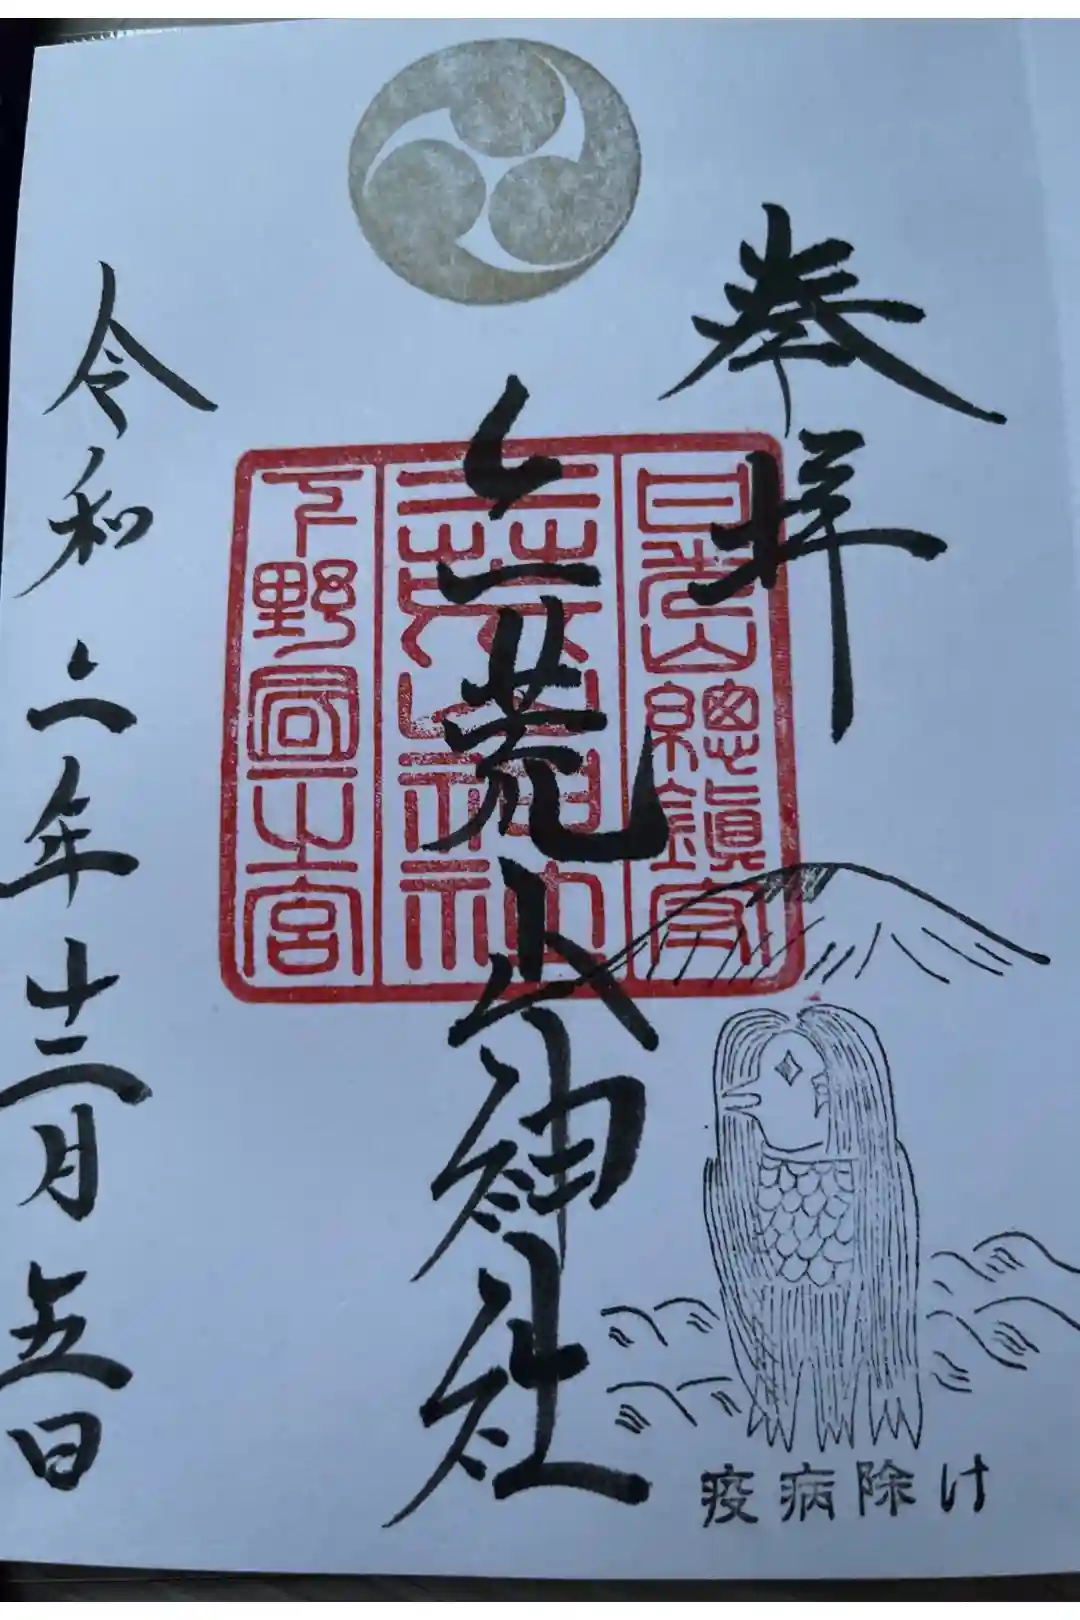 奉拝
日光山總鎮守
二荒山神社
下野國一之宮
令和二年十二月五日
疫病除け